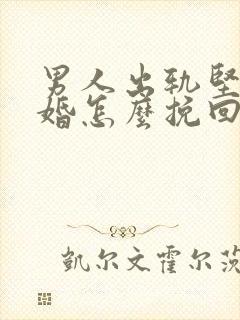 男人出轨坚
婚怎麼挽回
凱尔文霍尔茨